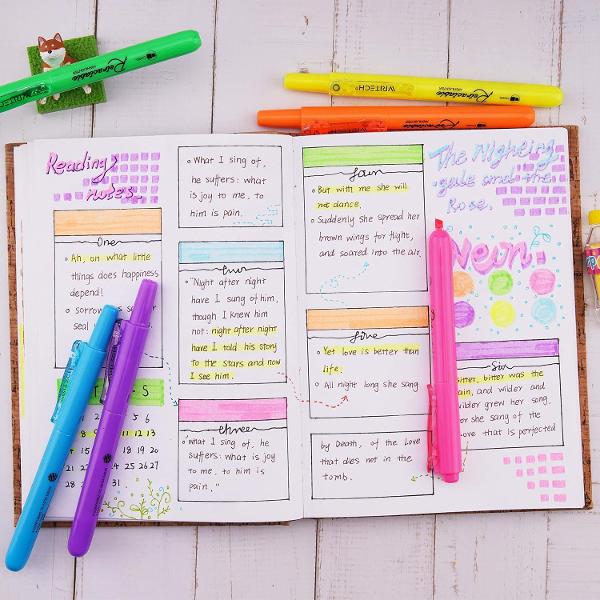 Retractable
HIGHLIGHTER
WRITECH
Retractable
HIGHLIGHTER
Retractable
HIGHLIGHTER
Reading
notes.
One
Ah, on what little
things does happiness
depend!
seal
S
6
11 12 13
15 18 19 20
21 22 25 26 27
28 31.
What I sing of,
he suffers: what
is joy to me, to
him is pain.
Two
"Night after night
have I sung of him,
though I knew him
not: night after night
have I told his story
to the stars and now
I see him.
three
"What I sing of, he
suffers: what is joy
to me, to him is
pain."
four
But with me she will
not dance.
Suddenly she spread her
brown wings for flight,
and soared into the air.
five
Yet love is better than
life.
All night long she sang
by Death, of the Love
that dies not in the
tomb.
The Nightin
gale and the
Rose.
Neon.
Six
bitter, bitter was the
pain, and wilder and
wilder grew her song,
for she sang of the
love that is perfected